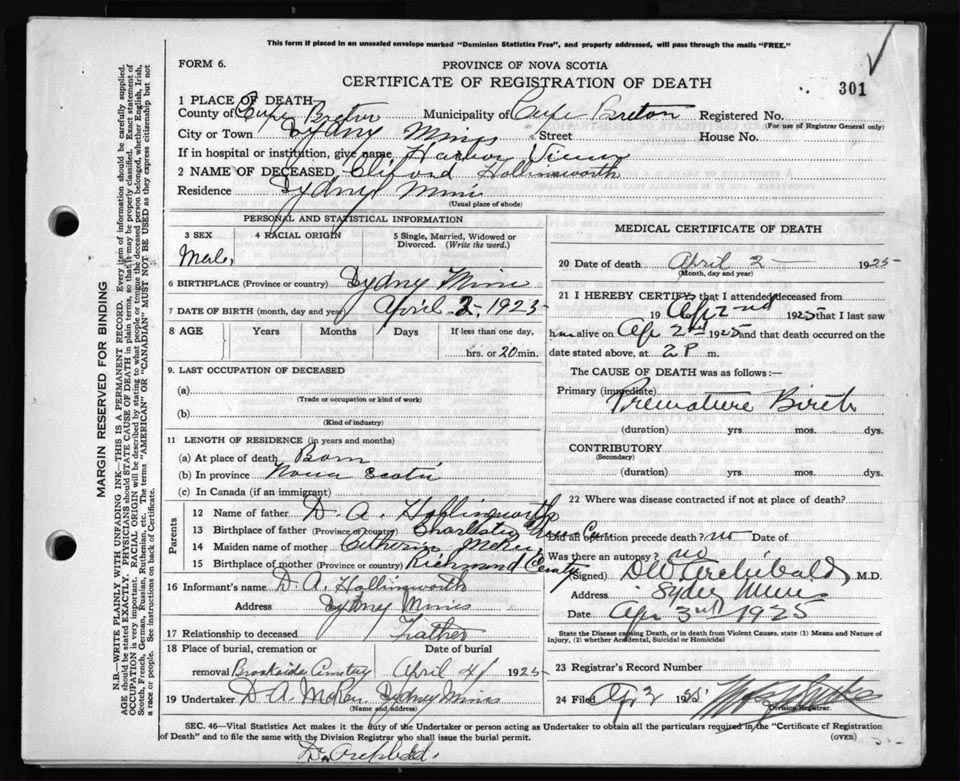 This form if placed in an unsealed envelope marked "Dominion Statistics Free", and properly addressed, will pass through the mails "FREE."
FORM 6.
PROVINCE OF NOVA SCOTIA
CERTIFICATE OF REGISTRATION OF DEATH
301
1 PLACE OF DEATH
County of Cape Breton Municipality of Cape Breton Registered No.
(For use of Registrar General only)
City or Town Sydney Mines Street House No.
If in hospital or institution, give name Harbor View
2 NAME OF DECEASED Cliford Hollinsworth
Residence Sydney Mines
(Usual place of abode)
PERSONAL AND STATISTICAL INFORMATION
3 SEX Male
4 RACIAL ORIGIN
5 Single, Married, Widowed or Divorced. (Write the word.)
6 BIRTHPLACE (Province or country) Sydney Mines
7 DATE OF BIRTH (month, day and year) April 2 - 1925
8 AGE Years Months Days If less than one day,
hrs. or 20 min.
9. LAST OCCUPATION OF DECEASED
(a)
(Trade or occupation or kind of work)
(b)
(Kind of industry)
11 LENGTH OF RESIDENCE (in years and months)
(a) At place of death Born
(b) In province Nova Scotia
(c) In Canada (if an immigrant)
Parents
12 Name of father D. A. Hollingworth
13 Birthplace of father (Province or Country)
14 Maiden name of mother Catherine McRae
15 Birthplace of mother (Province or Country) Richmond County
16 Informant's name D. A. Hollingworth
Address Sydney Mines
17 Relationship to deceased Father
18 Place of burial, cremation or Date of burial
removal Brookside Cemetry April 4/ 1925
19 Undertaker D. A. McRae Sydney Mines
(Name and address)
MEDICAL CERTIFICATE OF DEATH
20 Date of death April 2 - 1925
(Month, day and year)
21 I HEREBY CERTIFY that I attended deceased from
19 Ap 2nd 1925 that I last saw
him alive on Ap 2nd 1925 and that death occurred on
date stated above, at 2 P m.
The CAUSE OF DEATH was as follows :—
Primary (immediate) Premature Birth
(duration) yrs. mos. dys.
CONTRIBUTORY
(Secondary)
(duration) yrs. mos. dys.
22 Where was disease contracted if not at place of death?
Did an operation precede death? no Date of
Was there an autopsy? no
(Signed) D W Archibald M.D.
Address Sydney Mines
Date Ap 3rd 1925
State the Disease causing Death, or in death from Violent Causes, state (1) Means and Nature of
Injury, (2) whether Accidental, Suicidal or Homicidal
23 Registrar's Record Number
24 Filed Ap 2 1925
Division Registrar.
SEC. 46—Vital Statistics Act makes it the duty of the Undertaker or person acting as Undertaker to obtain all the particulars required in the "Certificate of Registration
of Death" and to file the same with the Division Registrar who shall issue the burial permit.
(OVER)
Dr Archibald.
MARGIN RESERVED FOR BINDING
N.B.—WRITE PLAINLY WITH UNFADING INK—THIS IS A PERMANENT RECORD. Every item of information should be carefully supplied.
AGE should be stated EXACTLY. PHYSICIANS should STATE CAUSE OF DEATH in plain terms, so that it may be properly classified. Exact statement of
OCCUPATION is very important. RACIAL ORIGIN will be described by stating to what people or tongue the deceased person belonged, whether English, Irish,
Scotch, French, German, Russian, Ruthenian, etc. The terms "AMERICAN" or "CANADIAN" MUST NOT BE USED as they express citizenship but not
a race or people. See instructions on back of Certificate.